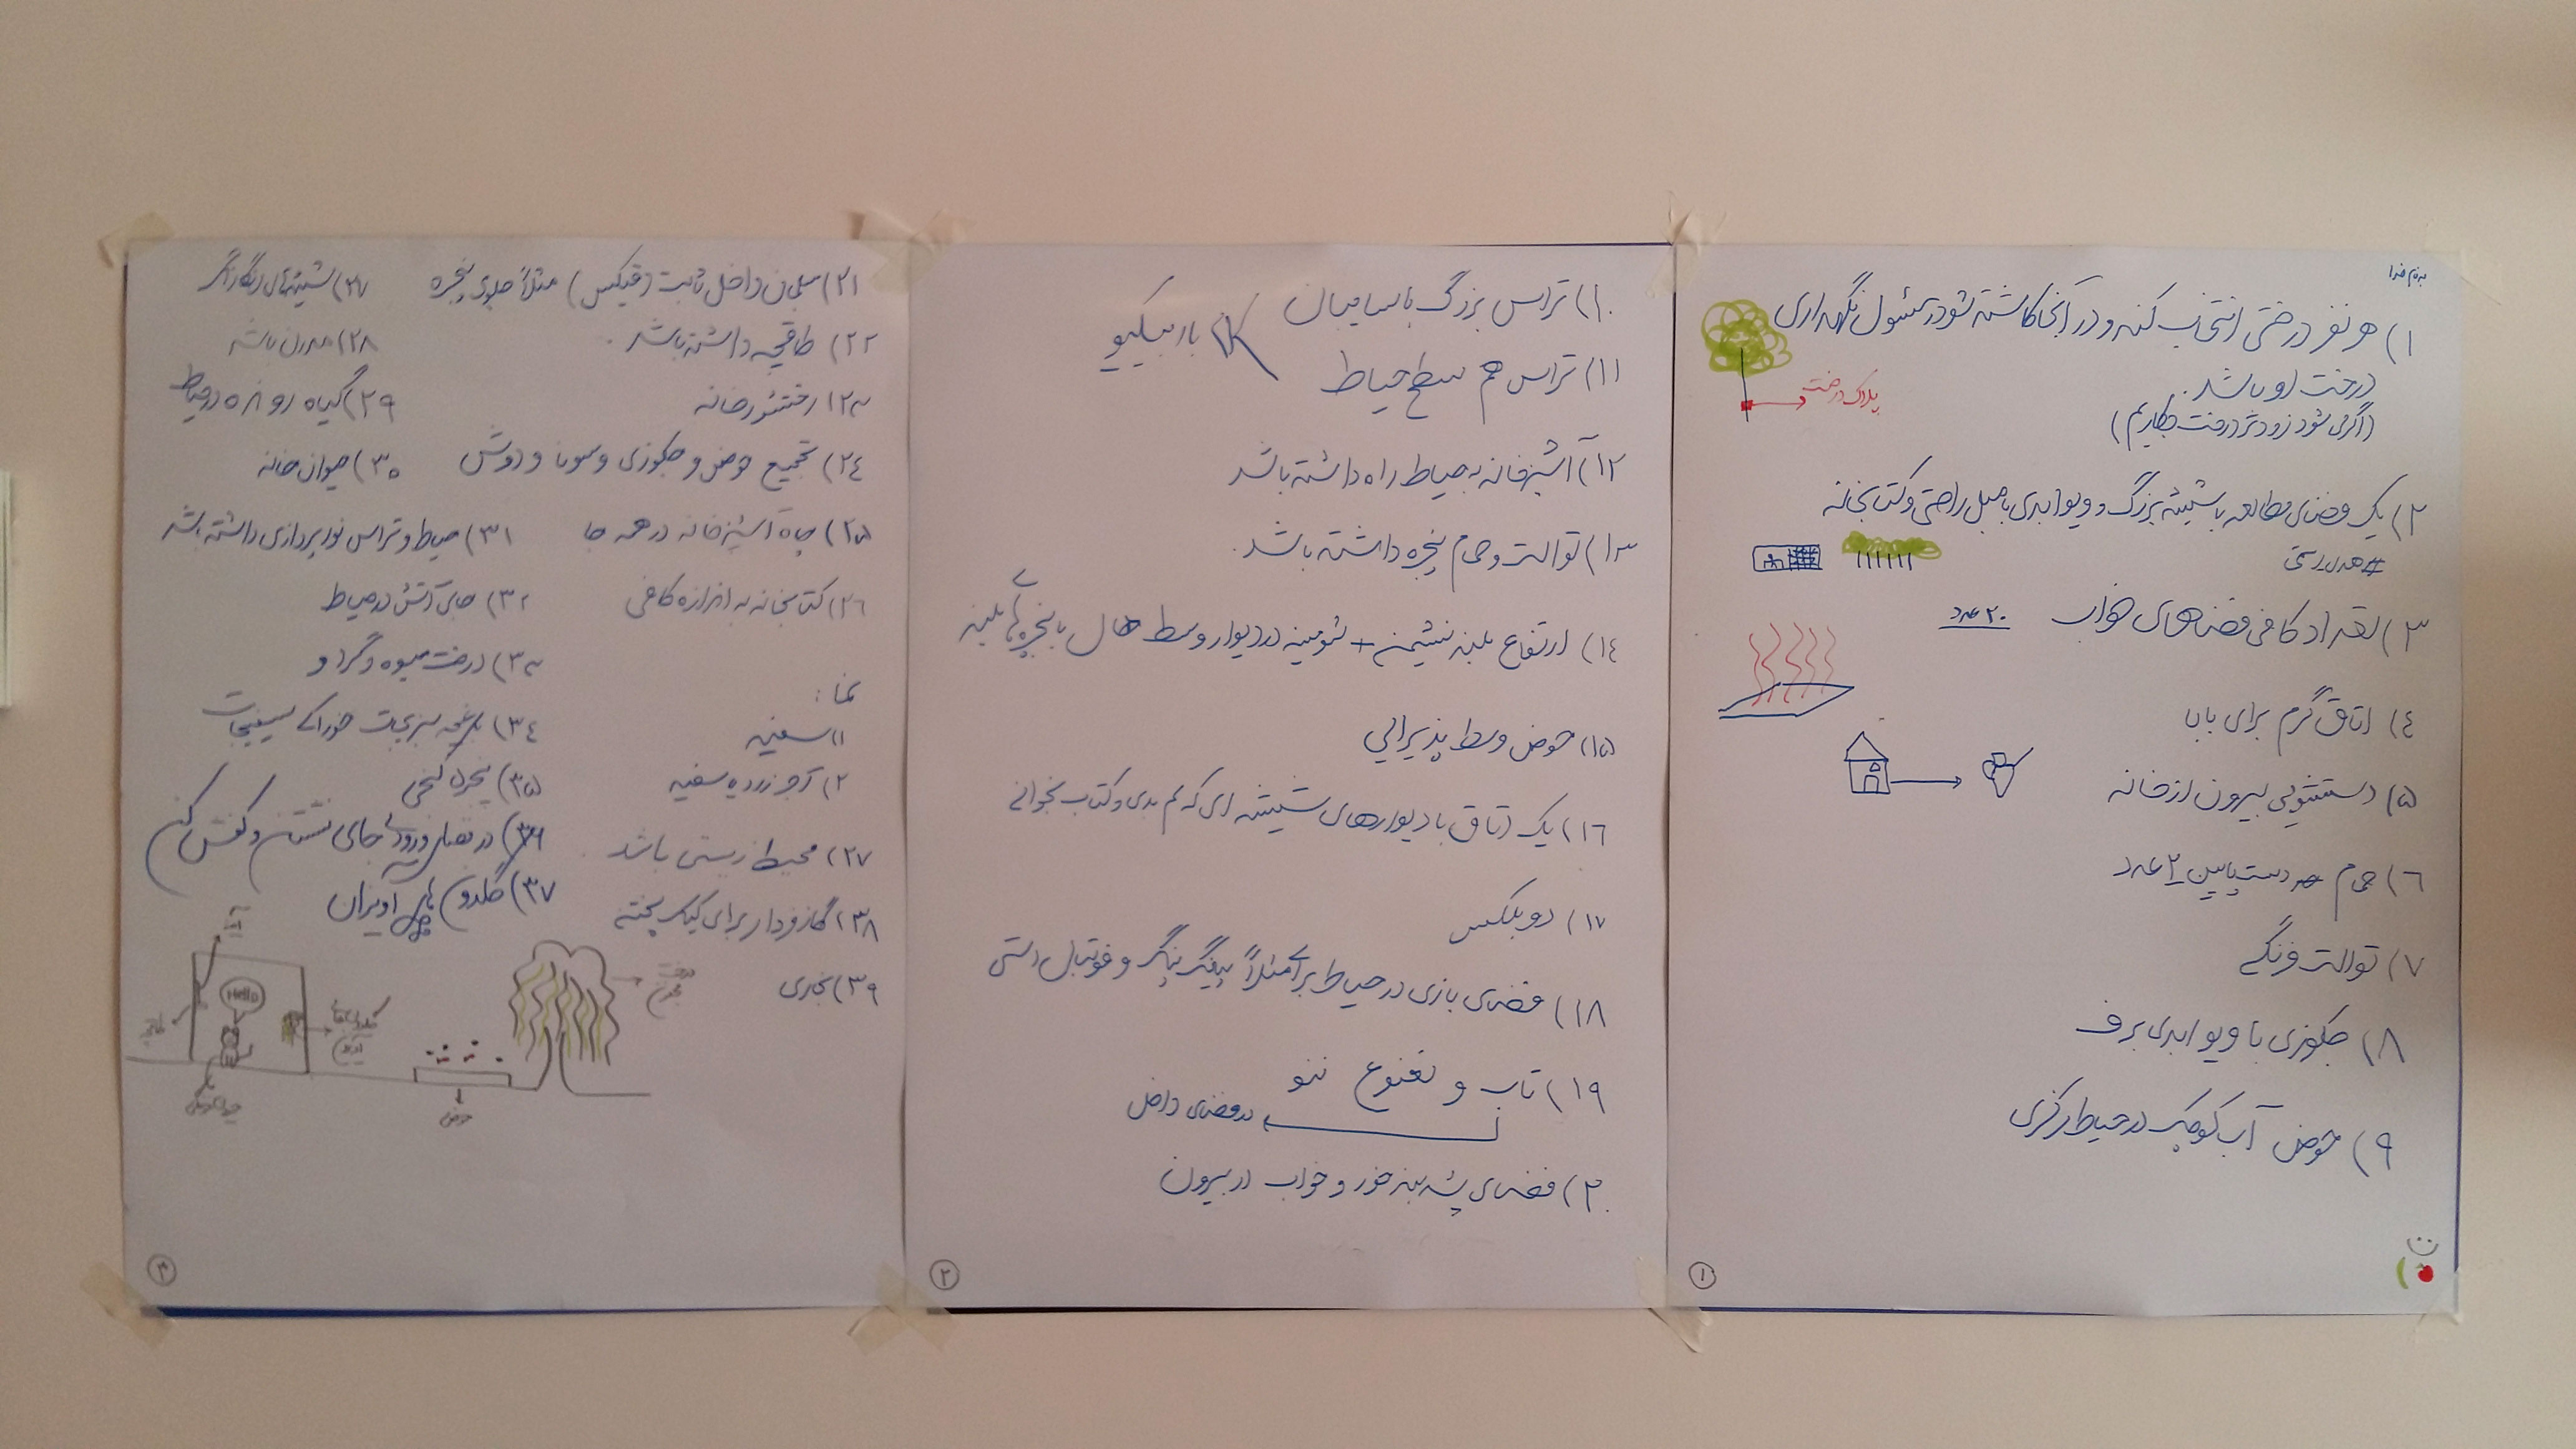 بنام خدا
۱) هر نفر درختی انتخاب کند و در آنجا کاشته شود و مسئول نگهداری
درخت او باشد.
(اگر می شود زودتر درخت بکاریم)
پلاک درخت
۲) یک فضای مطالعه با شیشه بزرگ و ویو ابدی با مبل راحتی و کتابخانه
۳) تعداد کافی فضاهای خواب ۲۰ عدد
۴) اتاق گرم برای بابا
۵) دستشویی بیرون از خانه
۶) حمام دست پایین ۲ عدد
۷) توالت فرنگی
۸) جکوزی با ویو ابدی برف
۹) حوض آب کوچک در حیاط مرکزی
۱
۱۰) تراس بزرگ با سایبان
باربیکیو
۱۱) تراس هم سطح حیاط
۱۲) آشپزخانه به حیاط راه داشته باشد
۱۳) توالت و حمام پنجره داشته باشد.
۱۴) ارتفاع بلند نشیمن + شومینه در دیوار وسط هال با پنجره های بلند
۱۵) حوض وسط پذیرایی
۱۶) یک اتاق با دیوارهای شیشه ای که لم بدی و کتاب بخوانی
۱۷) دوبلکس
۱۸) فضای بازی در حیاط برای مثلاً پینگ پنگ و فوتبال دستی
۱۹) تاب و ننو
در فضای داخل
۲۰) فضای پشه بند خور و خواب در بیرون
۲
۲۱) مبلمان داخل ثابت (فیکس) مثلاً جلوی پنجره
۲۲) طاقچه داشته باشد.
۲۳) رختشورخانه
۲۴) تجمیع حوض و جکوزی و سونا و دوش
۲۵) چاه آشپزخانه در همه جا
۲۶) کتابخانه به اندازه کافی
نما:
۱) سفید
۲) آجر زرد یه سفید
۲۷) محیط زیستی باشد
۳۸) گاز فردار برای کیک پختن
۳۹) بخاری
۲۷) شیشه های رنگارنگ
۲۸) مدرن باشد
۲۹) گیاه رونده در حیاط
۳۰) حیوان خانه
۳۱) حیاط و تراس نورپردازی داشته باشد
۳۲) جای آتش در حیاط
۳۳) درخت میوه و گردو
۳۴) باغچه سبزیجات خوراکی صیفیجات
۳۵) پنجره کنجی
۳۶) در فضای ورودی جای نشستن و کفش کن
۳۷) گلدون های آویزان
آینه
Hello
طاقچه
حوض
درخت
۳